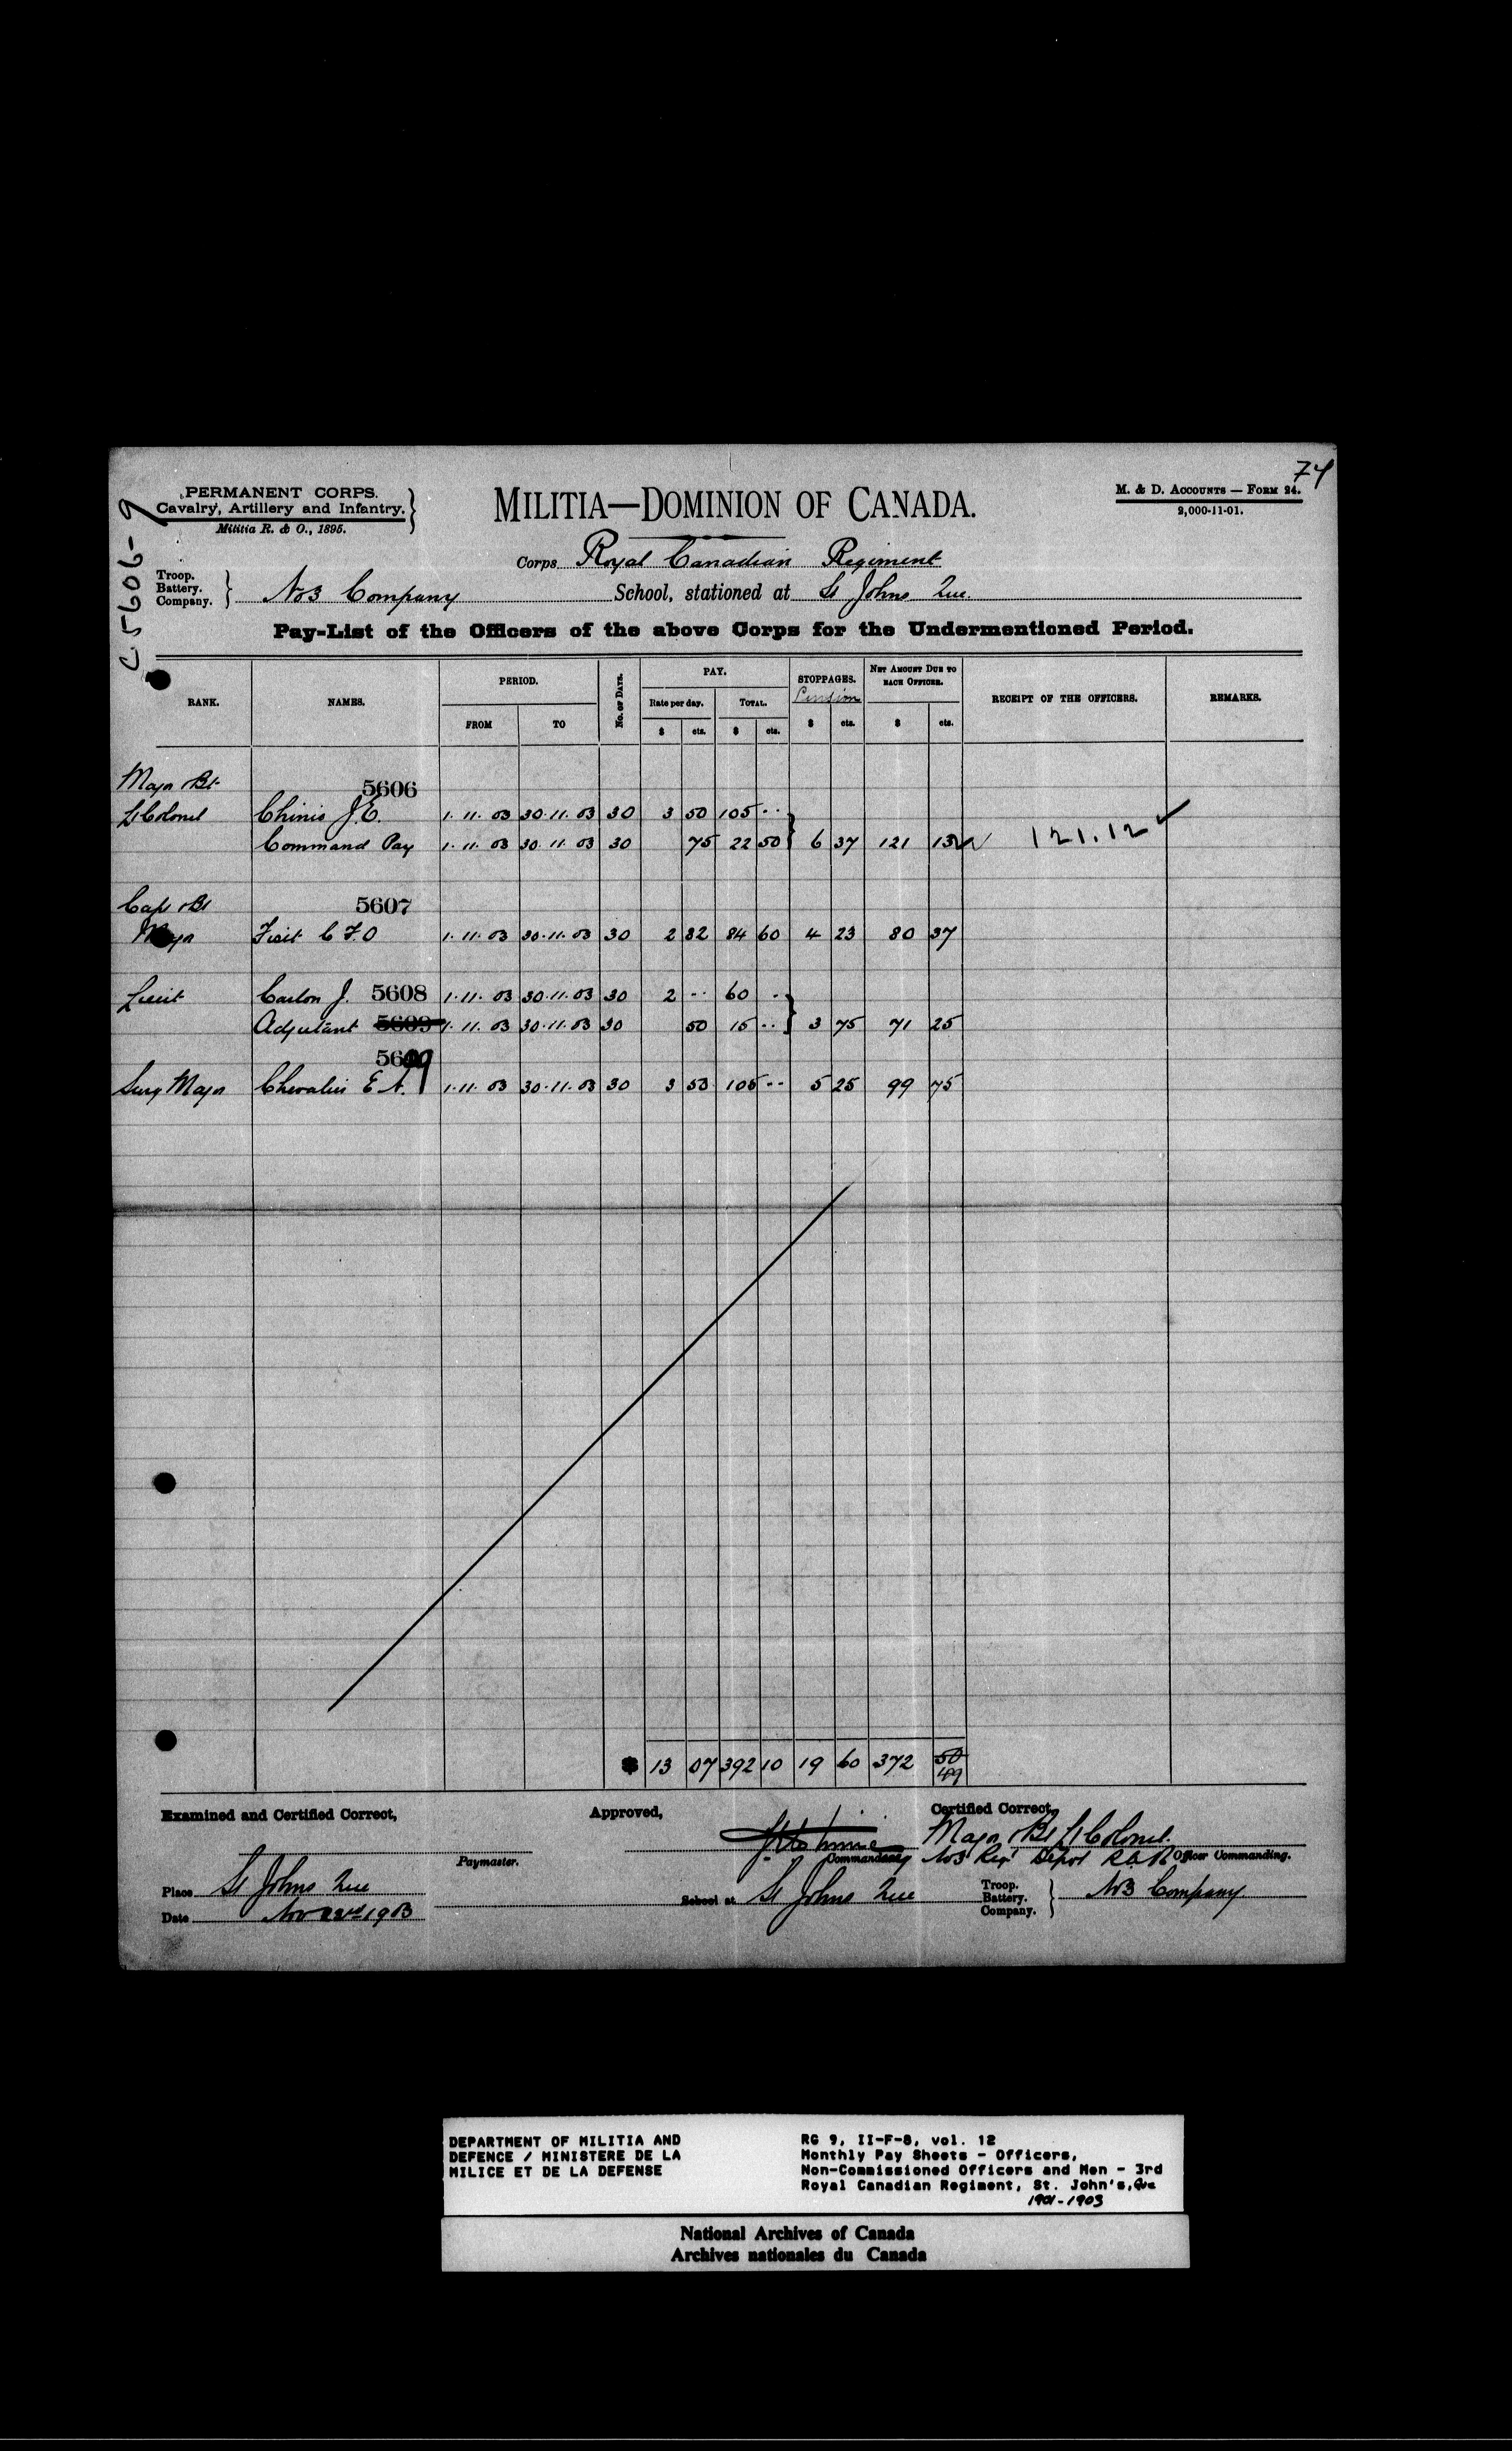 74
PERMANENT CORPS.
Cavalry, Artillery and Infantry.
Militia R. & O., 1895.
MILITIA—DOMINION OF CANADA.
M. & D. ACCOUNTS — FORM 24.
2,000-11-01.
C 5606-9
Corps Royal Canadian Regiment
Troop.
Battery.
Company.
No 3 Company School, stationed at St Johns Que.
Pay-List of the Officers of the above Corps for the Undermentioned Period.
RANK. NAMES. PERIOD. No. OF DAYS. PAY. STOPPAGES. NET AMOUNT DUE TO EACH OFFICER. RECEIPT OF THE OFFICERS. REMARKS.
Pension
FROM TO Rate per day. TOTAL.
$ cts. $ cts. $ cts. $ cts.
Major & Bt 5606
Lt Colonel Chinic J.E. 1.11.03 30.11.03 30 3 50 105 ..
Command Pay 1.11.03 30.11.03 30 75 22 50 } 6 37 121 13 121.12 ✓
Capt & Bt 5607
Major C F.O 1.11.03 30.11.03 30 2 82 84 60 4 23 80 37
Lieut Carlon J. 5608 1.11.03 30.11.03 30 2 .. 60 ..
Adjutant 5609 1.11.03 30.11.03 30 50 15 .. } 3 75 71 25
5609
Surg Major Chevalier E A. 1.11.03 30.11.03 30 3 50 105 .. 5 25 99 75
$ 13 07 392 10 19 60 372 50
49
Examined and Certified Correct, Approved, Certified Correct,
Major & Bt Lt Colonel
Paymaster. Commanding No 3 Reg Depot R.C.R. Officer Commanding.
Place St Johns Que School at St Johns Que Troop.
Battery.
Company. } No 3 Company
Date Nov 1903
DEPARTMENT OF MILITIA AND
DEFENCE / MINISTERE DE LA
MILICE ET DE LA DEFENSE
RG 9, II-F-8, vol. 12
Monthly Pay Sheets - Officers,
Non-Commissioned Officers and Men - 3rd
Royal Canadian Regiment, St. John's, Que
1901-1903
National Archives of Canada
Archives nationales du Canada